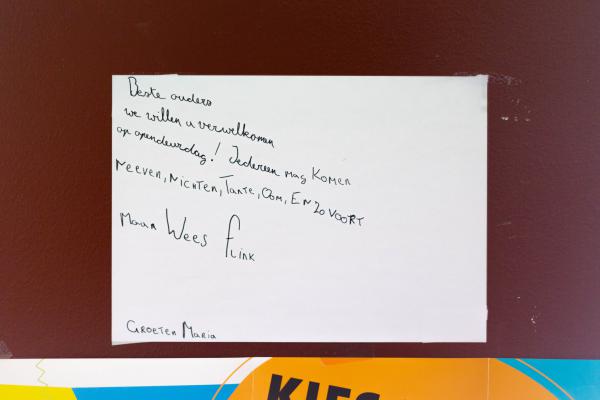 Beste ouders
we willen u verwelkomen
op opendeurdag! Iedereen mag Komen
Neeven, Nichten, Tante, Oom, En Zo VOORT
Maar Wees flink
GROETEN Maria
KIES